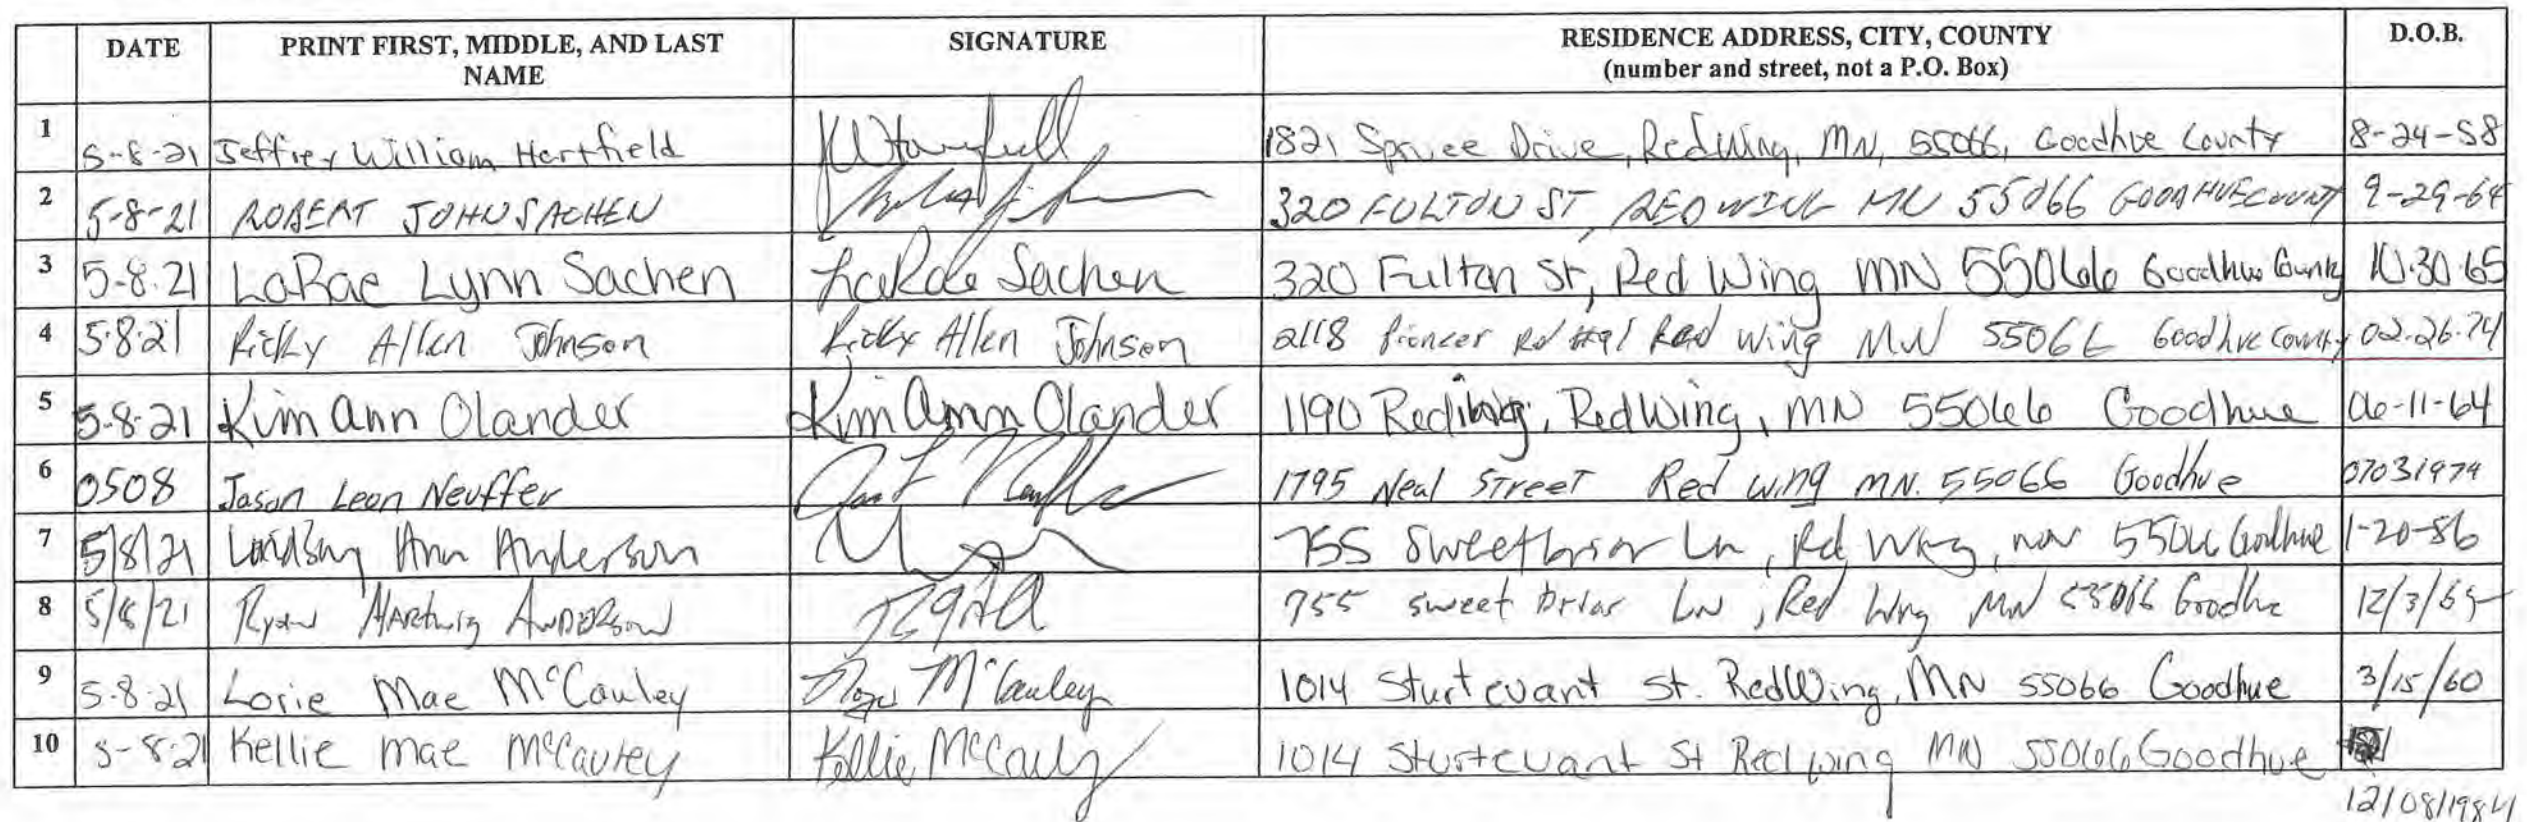 DATE PRINT FIRST, MIDDLE, AND LAST NAME SIGNATURE RESIDENCE ADDRESS, CITY, COUNTY (number and street, not a P.O. Box) D.O.B.
1 5-8-21 Jeffrey William Hartfield 1821 Spruce Drive, Red Wing, MN, 55066, Goodhue County 8-24-58
2 5-8-21 ROBERT JOHN SACHEN 320 FULTON ST, RED WING MN 55066 GOODHUE COUNTY 9-29-64
3 5-8.21 LaRae Lynn Sachen LaRae Sachen 320 Fulton St, Red Wing MN 55066 Goodhue County 10.30.65
4 5.8.21 Ricky Allen Johnson Ricky Allen Johnson 2118 Pioneer Rd Red Wing MN 55066 Goodhue County 02.26.74
5 5-8-21 Kim Ann Olander Kim Ann Olander 1190 Red Wing, MN 55066 Goodhue 06-11-64
6 0508 Jason Leon Neuffer 1795 Neal Street Red Wing MN. 55066 Goodhue 07031974
7 5/8/21 Lindsay Ann Anderson 755 Sweetbriar Ln, Rd Wing, mn 55066 Goodhue 1-20-86
8 5/8/21 Ryan Hartwig Anderson 755 sweet briar LN, Red Wing MN 55066 Goodhue 12/3/65
9 5-8-21 Lorie Mae McCauley McCauley 1014 Sturtevant St. Red Wing, MN 55066 Goodhue 3/15/60
10 5-8-21 Kellie Mae McCauley Kellie McCauley 1014 Sturtevant St Red wing MN 55066 Goodhue
12/08/1984